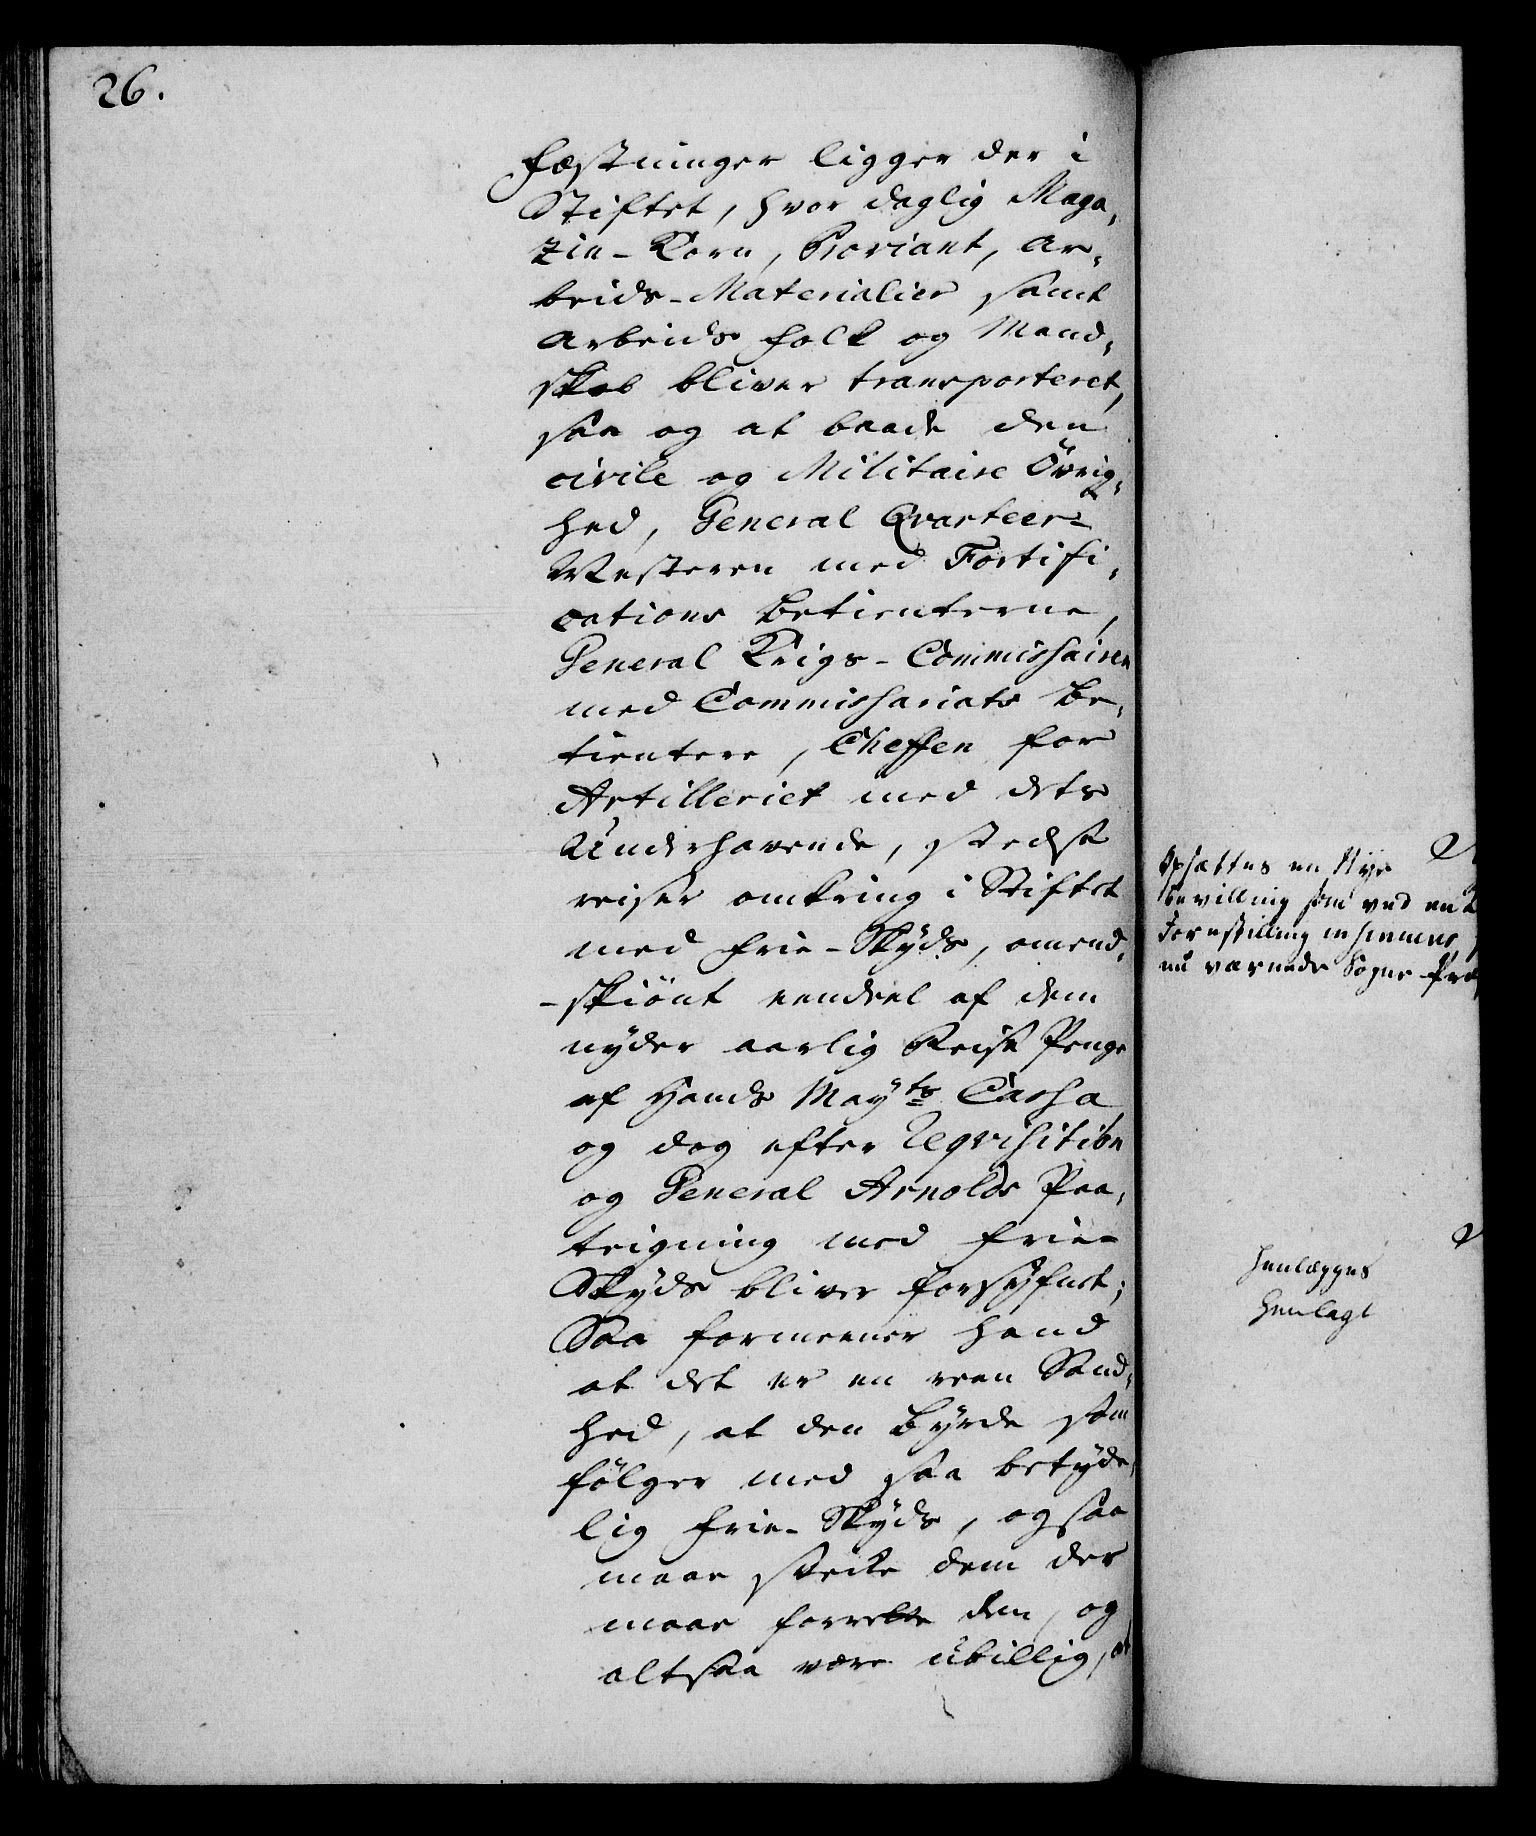 26.
Fæstninger ligger der i
Stiftet, hvor daglig Maga,
zin-Korn, Proviant, Ar,
beids-Materialier samt
Arbeids folk og Mand,
skab bliver transporteret,
saa og at baade den
civile og Militaire Övrig,
hed, General Qvarteer-
Mesteren med Fortifi,
cations Betienterne,
General Krigs-Commissairen
med Commissariats Be,
tientere, Cheffen for
Artilleriet med dets
Underhavende, stedse
reiser omkring i Stiftet
med frie-Skyds, omend,
-skiönt eendeel af dem
nyder aarlig Reise Penge
af Hands Mayts Cassa
og dog efter Reqvisition
og General Arnolds Paa,
teigning med frie-
Skyds bliver forsÿnet;
Saa formeener hand
at det er en reen Sand,
hed, at den Byrde som
fölger med saa betyde,
lig frie-Skyds, ogsaa
maae stede dem der
maae forrette den, og
altsaa være ubillig, at
Opsættes en Nye
Bevilling som ved en
Forestilling indhemmes
nu værende Sogne-Præ
Henlægges
Henlagt